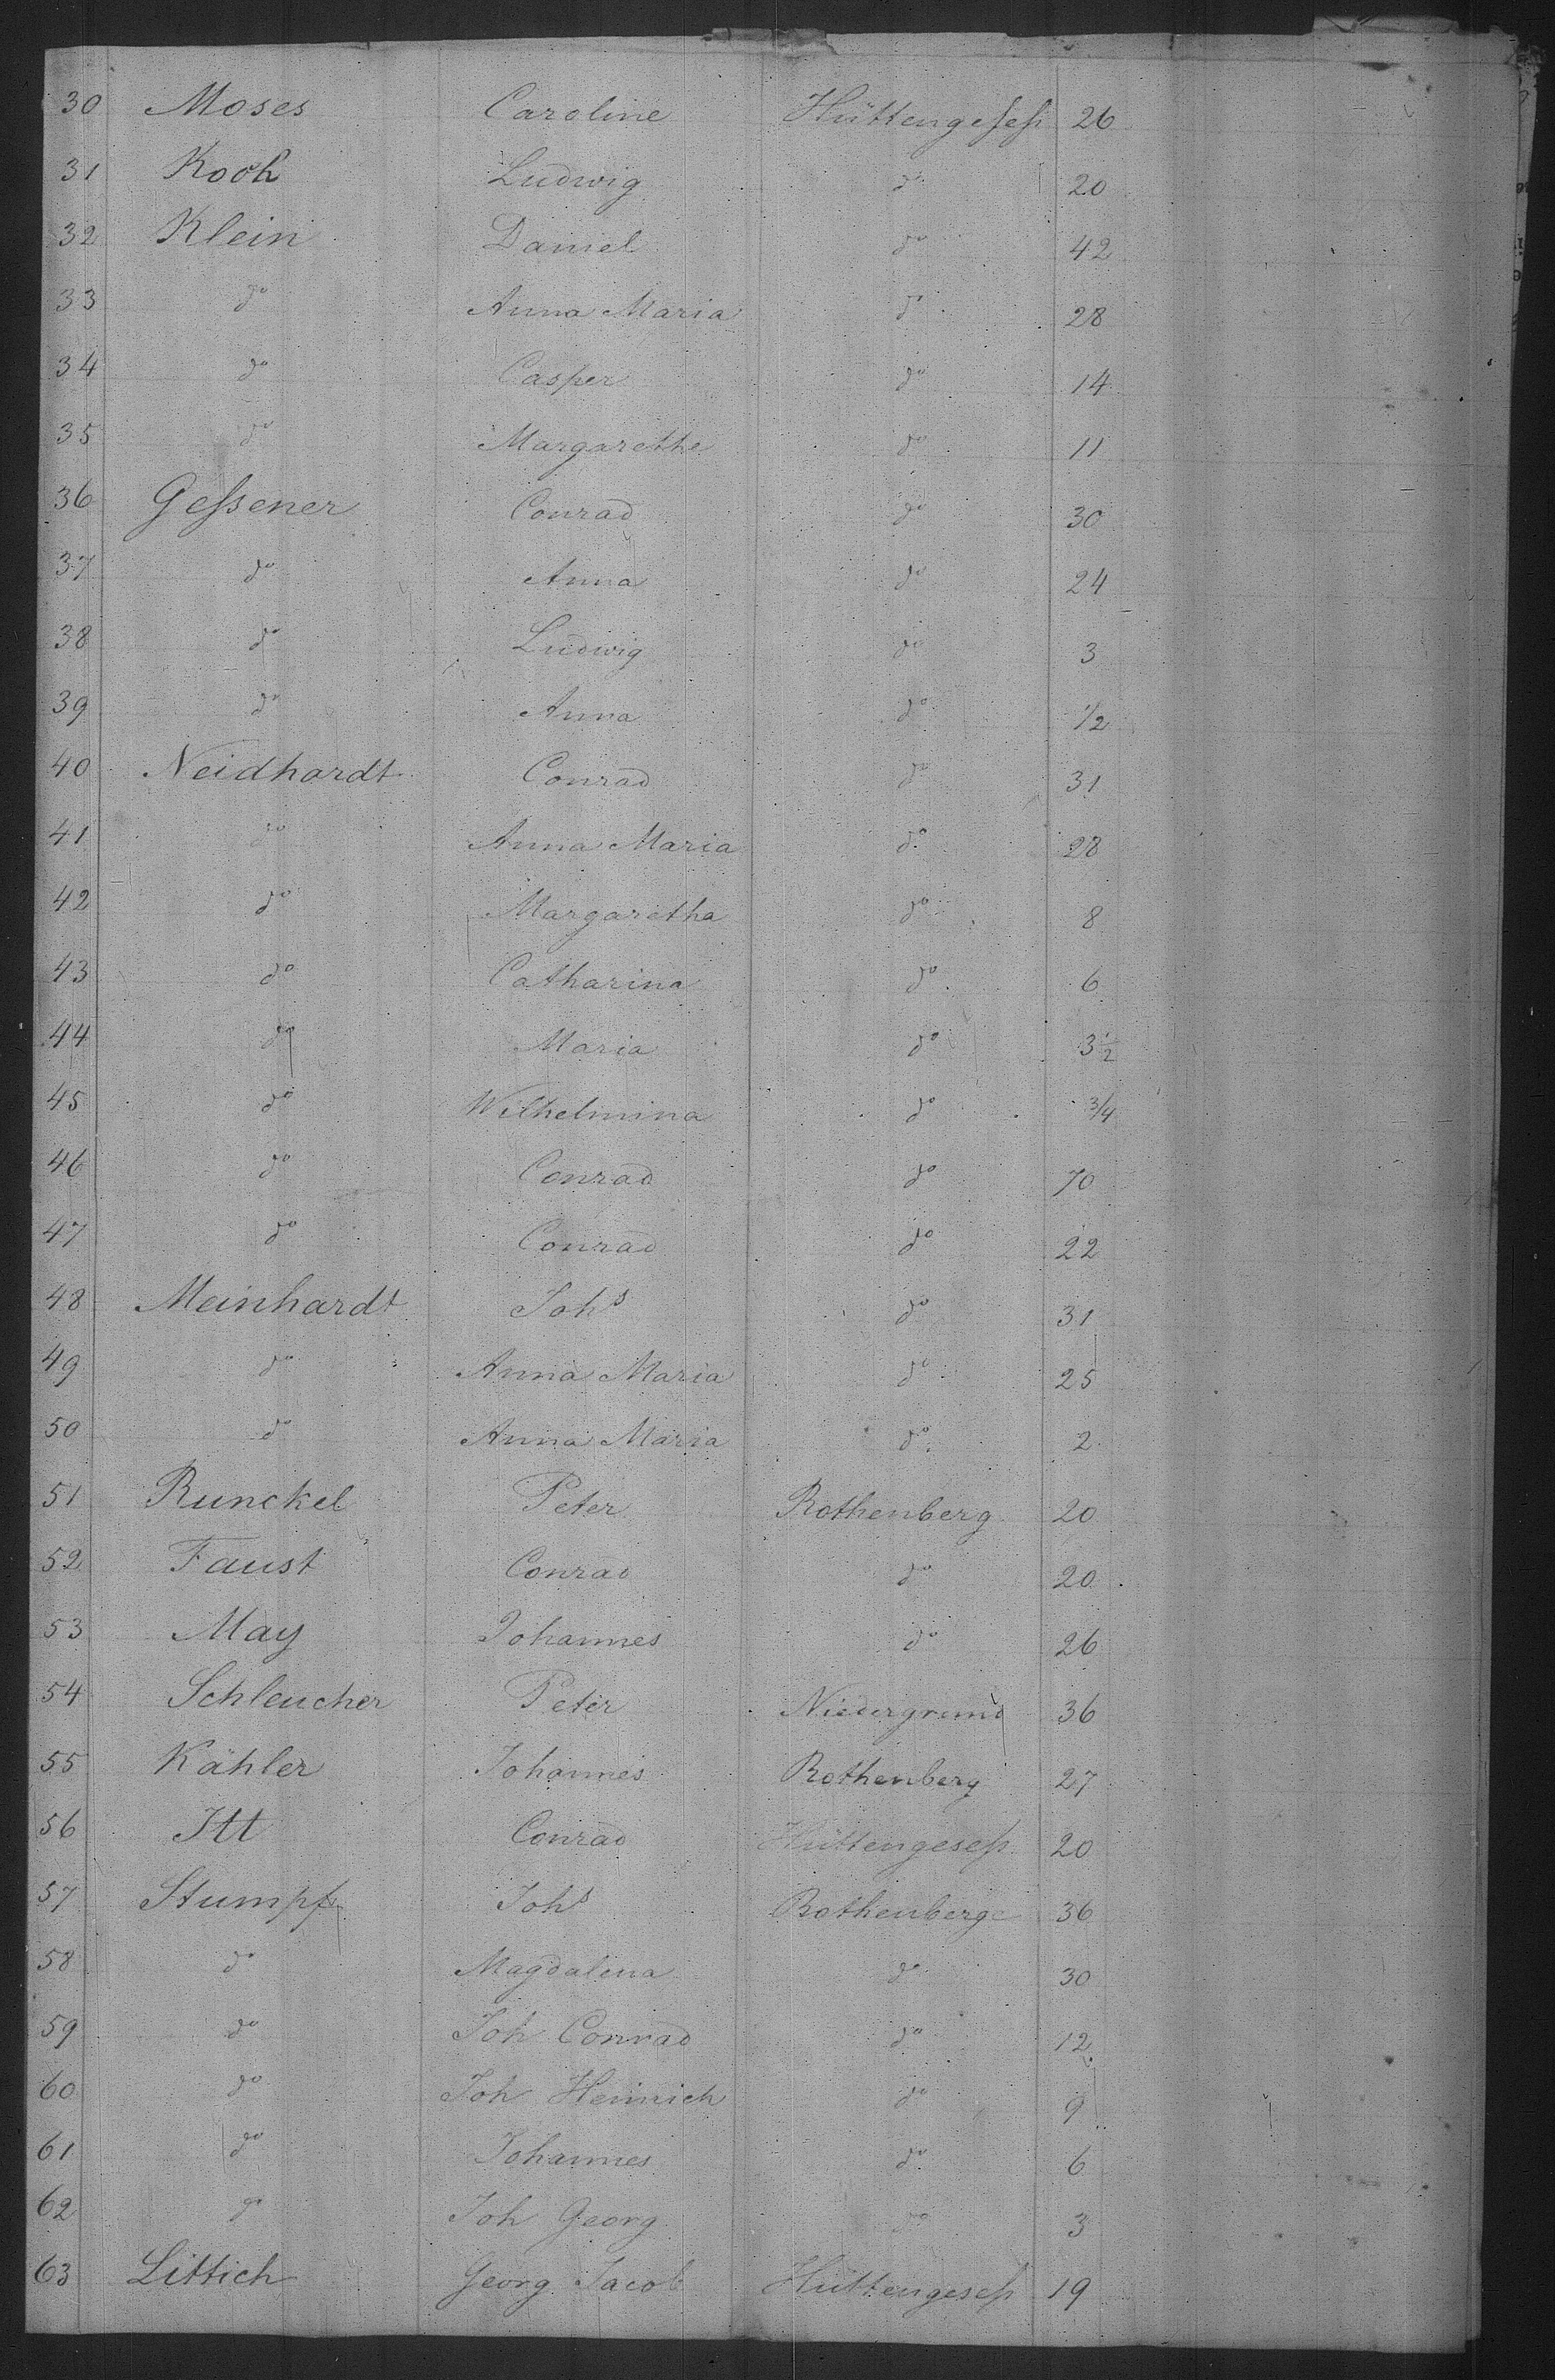 30 Moses Caroline Hüttengeseß 26
31 Koch Ludwig do 20
32 Klein Daniel do 42
33 do Anna Maria do 28
34 do Casper do 14
35 do Margarethe do 11
36 Geſsener Conrad do 30
37 do Anna do 24
38 do Ludwig do 3
39 do Anna do 1/2
40 Neidhardt Conrad do 31
41 do Anna Maria do 28
42 do Margaretha do 8
43 do Catharina do 6
44 do Maria do 3 1/2
45 do Wilhelmina do 3/4
46 do Conrad do 70
47 do Conrad do 22
48 Meinhardt Johs do 31
49 do Anna Maria do 25
50 do Anna Maria do 2
51 Runckel Peter Rothenberg 20
52 Faust Conrad do 20
53 May Johannes do 26
54 Schleucher Peter Niedergrund 36
55 Kähler Johannes Rothenberg 27
56 Itt Conrad Hüttengeseß 20
57 Stumpf Johs Rothenberge 36
58 do Magdalena do 30
59 do Joh Conrad do 12
60 do Joh Heinrich do 9
61 do Johannes do 6
62 do Joh Georg do 3
63 Littich Georg Jacob Hüttengeseß 19